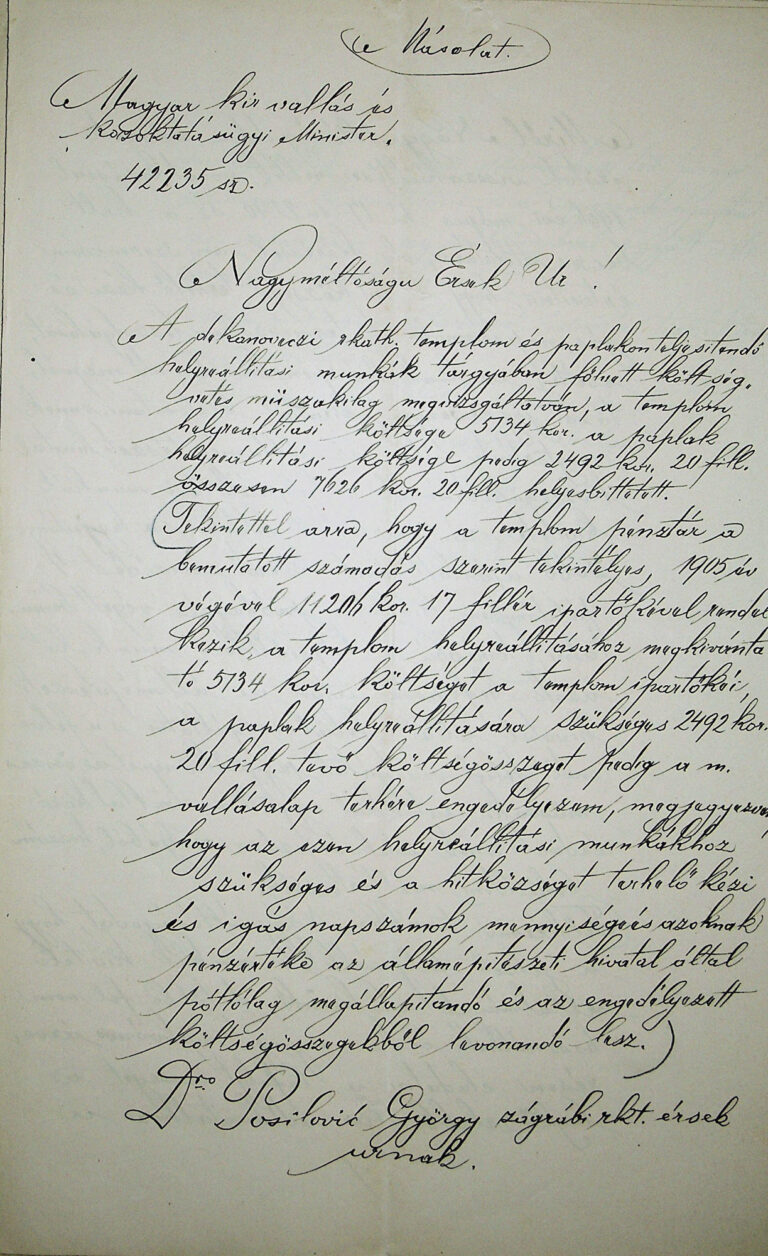 Másolat.
Magyar kir vallás és
közoktatásügyi Minister.
42235 sz.
Nagyméltóságu Érsek Ur!
A dekanoveczi rkath. templom és paplakon teljesitendő
helyreállitási munkák tárgyában fölvett költség-
vetés müszakilag megvizsgáltatván, a templom
helyreállitási költsége 5134 kor. a paplak
helyreállitási költsége pedig 2492 kor. 20 fill.
összesen 7626 kor. 20 fill. helyesbittetett.
(Tekintettel arra, hogy a templom pénztár a
bemutatott számadás szerint tekintélyes, 1905 év
végével 11206 kor. 17 fillér ipartőkével rendel
kezik, a templom helyreállitásához megkivánta
tó 5134 kor. költséget a templom ipartőkéi,
a paplak helyreállitására szükséges 2492 kor.
20 fill. tevő költségösszeget pedig a m.
vallásalap terhére engedélyezem, megjegyezvén
hogy az ezen helyreállitási munkákhoz
szükséges és a hitközséget terhelő kézi
és igás napszámok mennyisége és azoknak
pénzértéke az államépitészeti hivatal által
pótlólag megállapitandó és az engedélyezett
költségösszegekből levonandó lesz.)
Dro Posilović György zágrábi rkt. érsek
urnak.